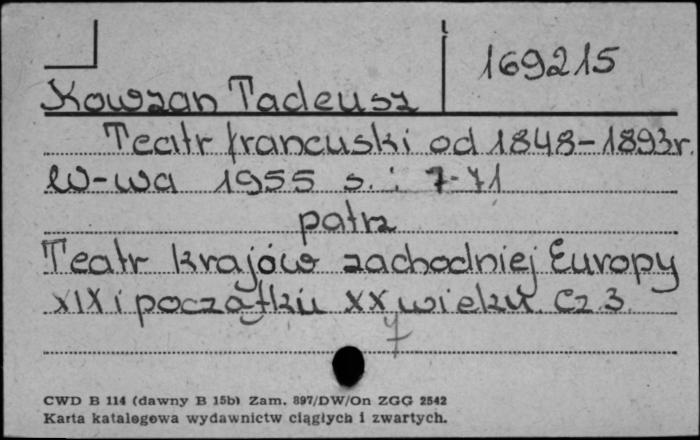 169215
Kowzan Tadeusz
Teatr francuski od 1848-1893r.
W-wa 1955 s. : 7-71
patrz
Teatr krajów zachodniej Europy
XIX i początku XX wieku. Cz 3
7
CWD B 114 (dawny B 15b) Zam. 897/DW/On ZGG 2542
Karta katalogowa wydawnictw ciągłych i zwartych.